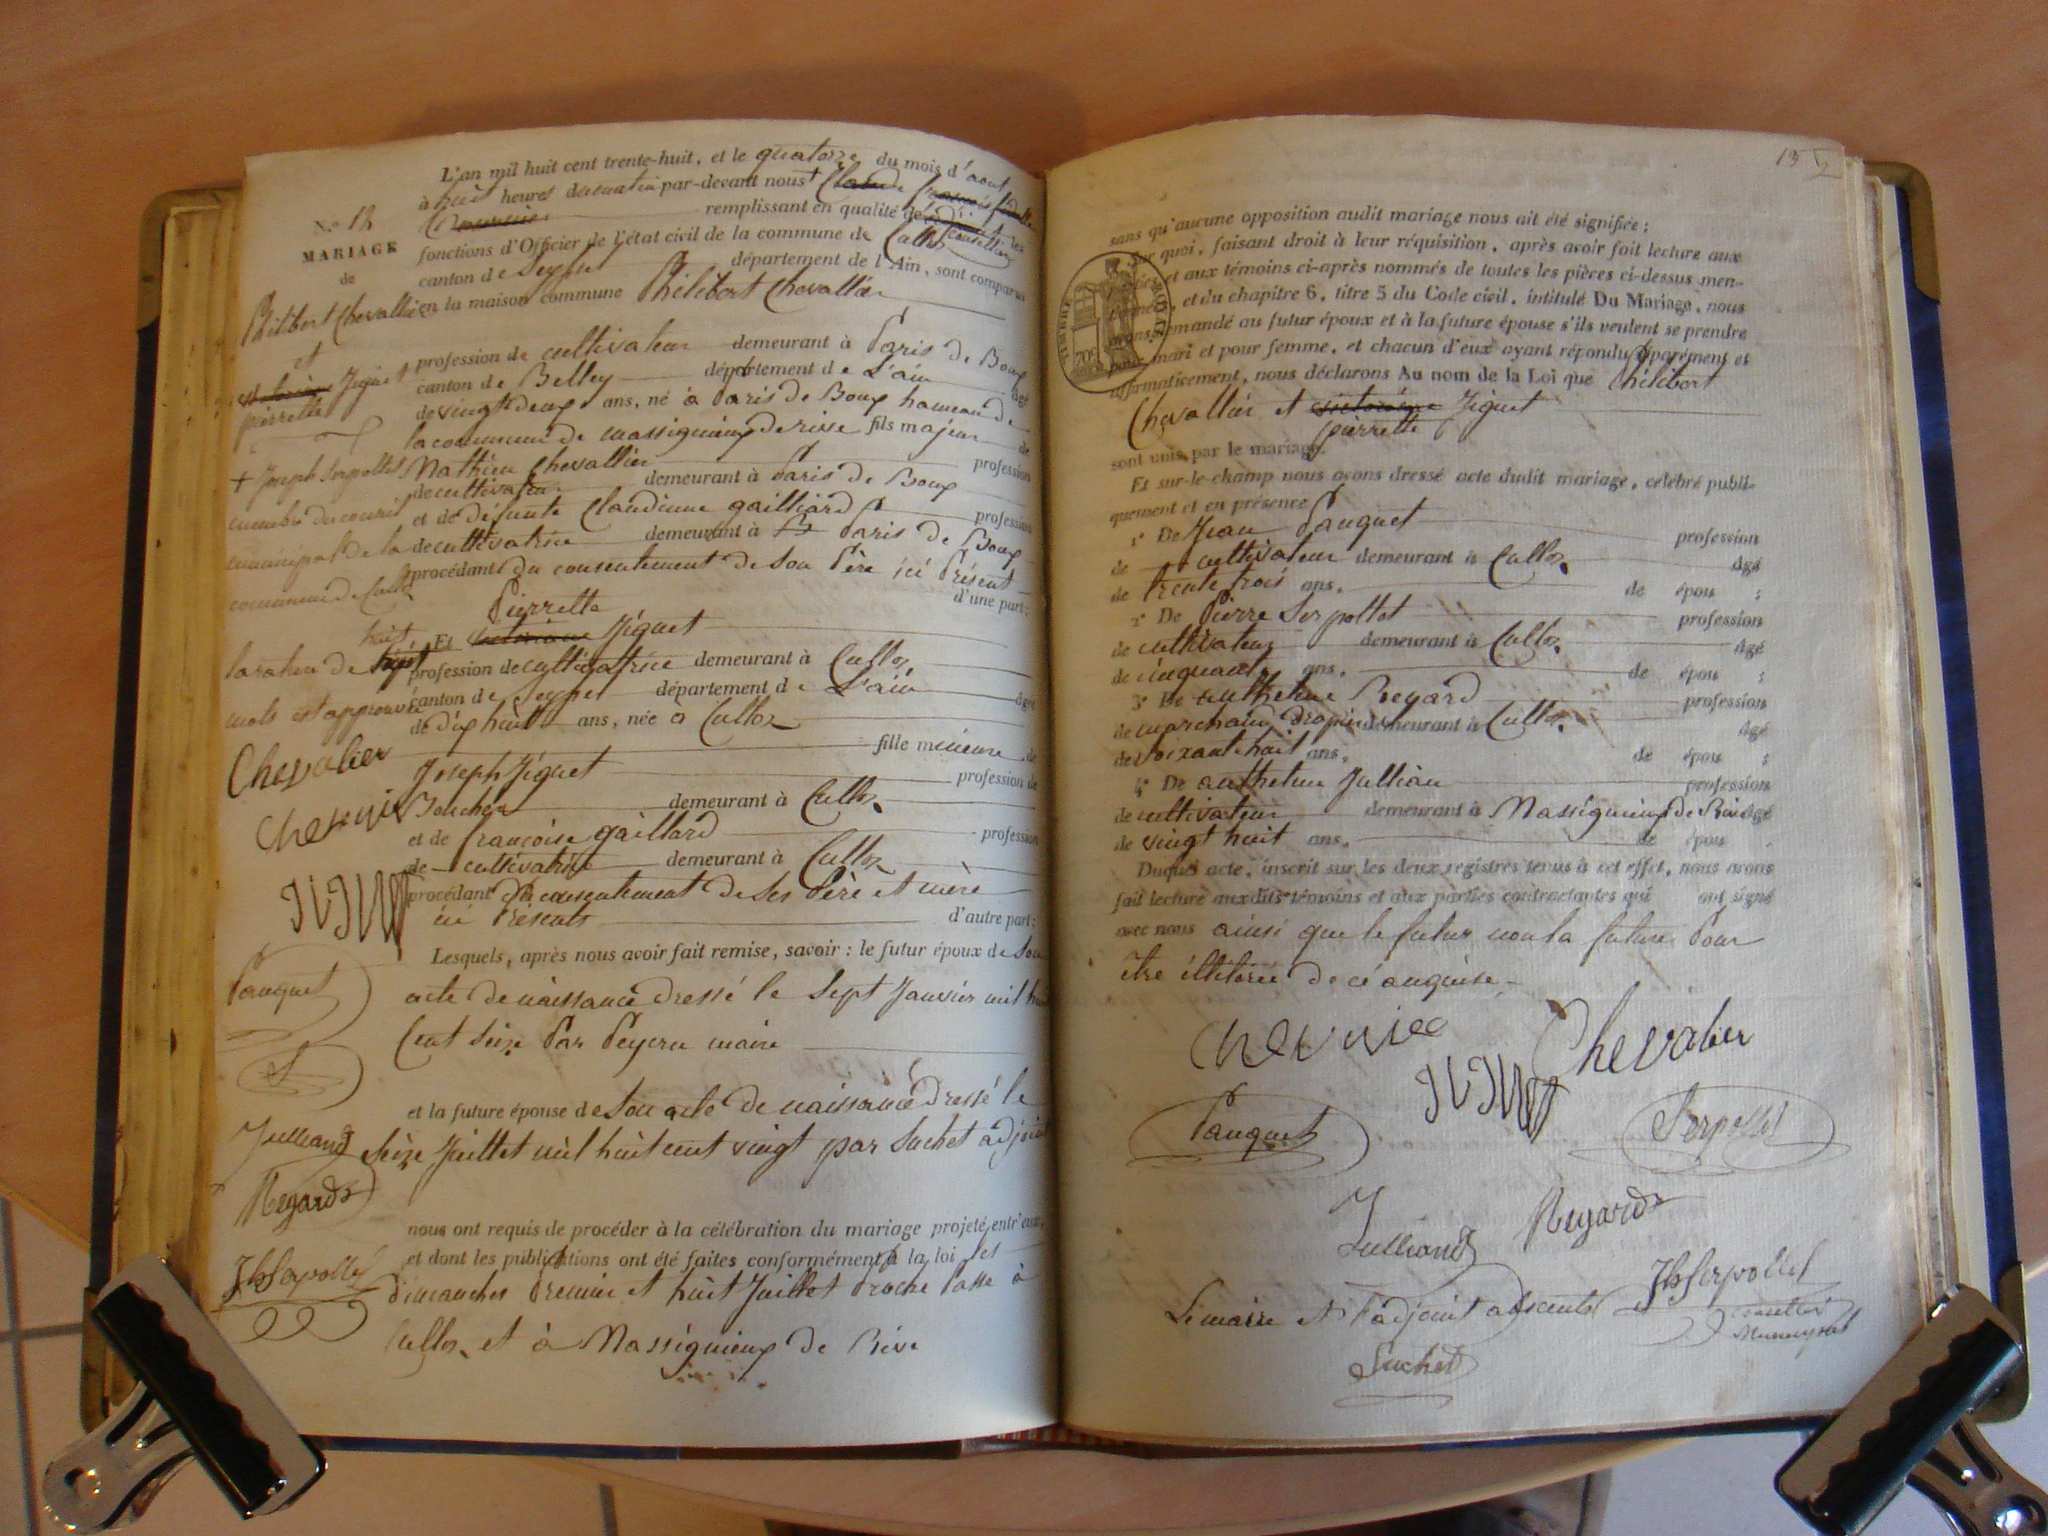 L'an mil huit cent trente-huit, et le quatorze du mois d'aout
à huit heures du matin par-devant nous + Claude
remplissant en qualité de les
fonctions d'Officier de l'état civil de la commune de Culloz
canton de Seyssel département de l'Ain, sont comparus
en la maison commune Philibert Chevallier
profession de cultivateur demeurant à Paris de Boux
canton de Belley département de L'ain âgé
de vingt deux ans, né à Paris de Boux hameau de
la commune de massignieux de rive fils majeur de
Mathieu Chevallier profession
de cultivateur demeurant à Paris de Boux
et de défunte Claudine gailliard profession
de cultivatrice demeurant à Paris de Boux
procédant du consentement de son Père ici Présent
d'une part;
Pierrette
Et victorine Jiguet
profession de cultivatrice demeurant à Culloz
canton de Seyssel département de L'ain âgée
de dix huit ans, née à Culloz
fille mineure de
Joseph Jiguet profession de
demeurant à Culloz
et de françoise gaillard profession
de cultivatrice demeurant à Culloz
procédant du consentement de ses Père et mère
ici Présents d'autre part;
Lesquels, après nous avoir fait remise, savoir : le futur époux de son
acte de naissance dressé le sept Janvier mil huit
Cent Seize Par maire
et la future épouse de son acte de naissance dressé le
seize Juillet mil huit cent vingt par Suchet adjoint
nous ont requis de procéder à la célébration du mariage projeté entr'eux,
et dont les publications ont été faites conformément à la loi les
dimanches Premier et huit Juillet Proche Passé à
Culloz et à Massignieux de Rive
N.° 13
MARIAGE
de
Philibert Chevallier
et
victorine Jiguet
pierrette
+ Joseph Serpollet
membre du conseil
municipal de la
commune de Culloz
huit
la rature de sept
mots est approuvée
Chevalier
Pauquet
Julliand
Regard
Jh Serpollet
13
sans qu'aucune opposition audit mariage nous ait été signifiée;
Sur quoi, faisant droit à leur réquisition, après avoir fait lecture aux
et aux témoins ci-après nommés de toutes les pièces ci-dessus men-
et du chapitre 6, titre 5 du Code civil, intitulé Du Mariage, nous
avons demandé au futur époux et à la future épouse s'ils veulent se prendre
pour mari et pour femme, et chacun d'eux ayant répondu séparément et
affirmativement, nous déclarons Au nom de la Loi que Philibert
Chevallier et victorine Jiguet
pierrette
sont unis par le mariage.
Et sur-le-champ nous avons dressé acte dudit mariage, célébré publi-
quement et en présence
1° De Jean Pauquet profession
de cultivateur demeurant à Culloz âgé
de trente trois ans, de épou ;
2° De Pierre Serpollet profession
de cultivateur demeurant à Culloz âgé
de cinquante ans, de épou ;
3° De anthelme Regard profession
de marchand drapier demeurant à Culloz âgé
de soixante huit ans, de épou ;
4° De anthelme Jullian profession
de cultivateur demeurant à Massignieux de Rive âgé
de vingt huit ans, de épou .
Duquel acte, inscrit sur les deux registres tenus à cet effet, nous avons
fait lecture auxdits témoins et aux parties contractantes qui ont signé
avec nous ainsi que le futur non la future Pour
être de ce enquise
Chevalier
Pauquet
Serpollet
Julliand
Regard
Jh Serpollet
Le maire et l'adjoint absents
Suchet
TIMBRE ROYAL
70c